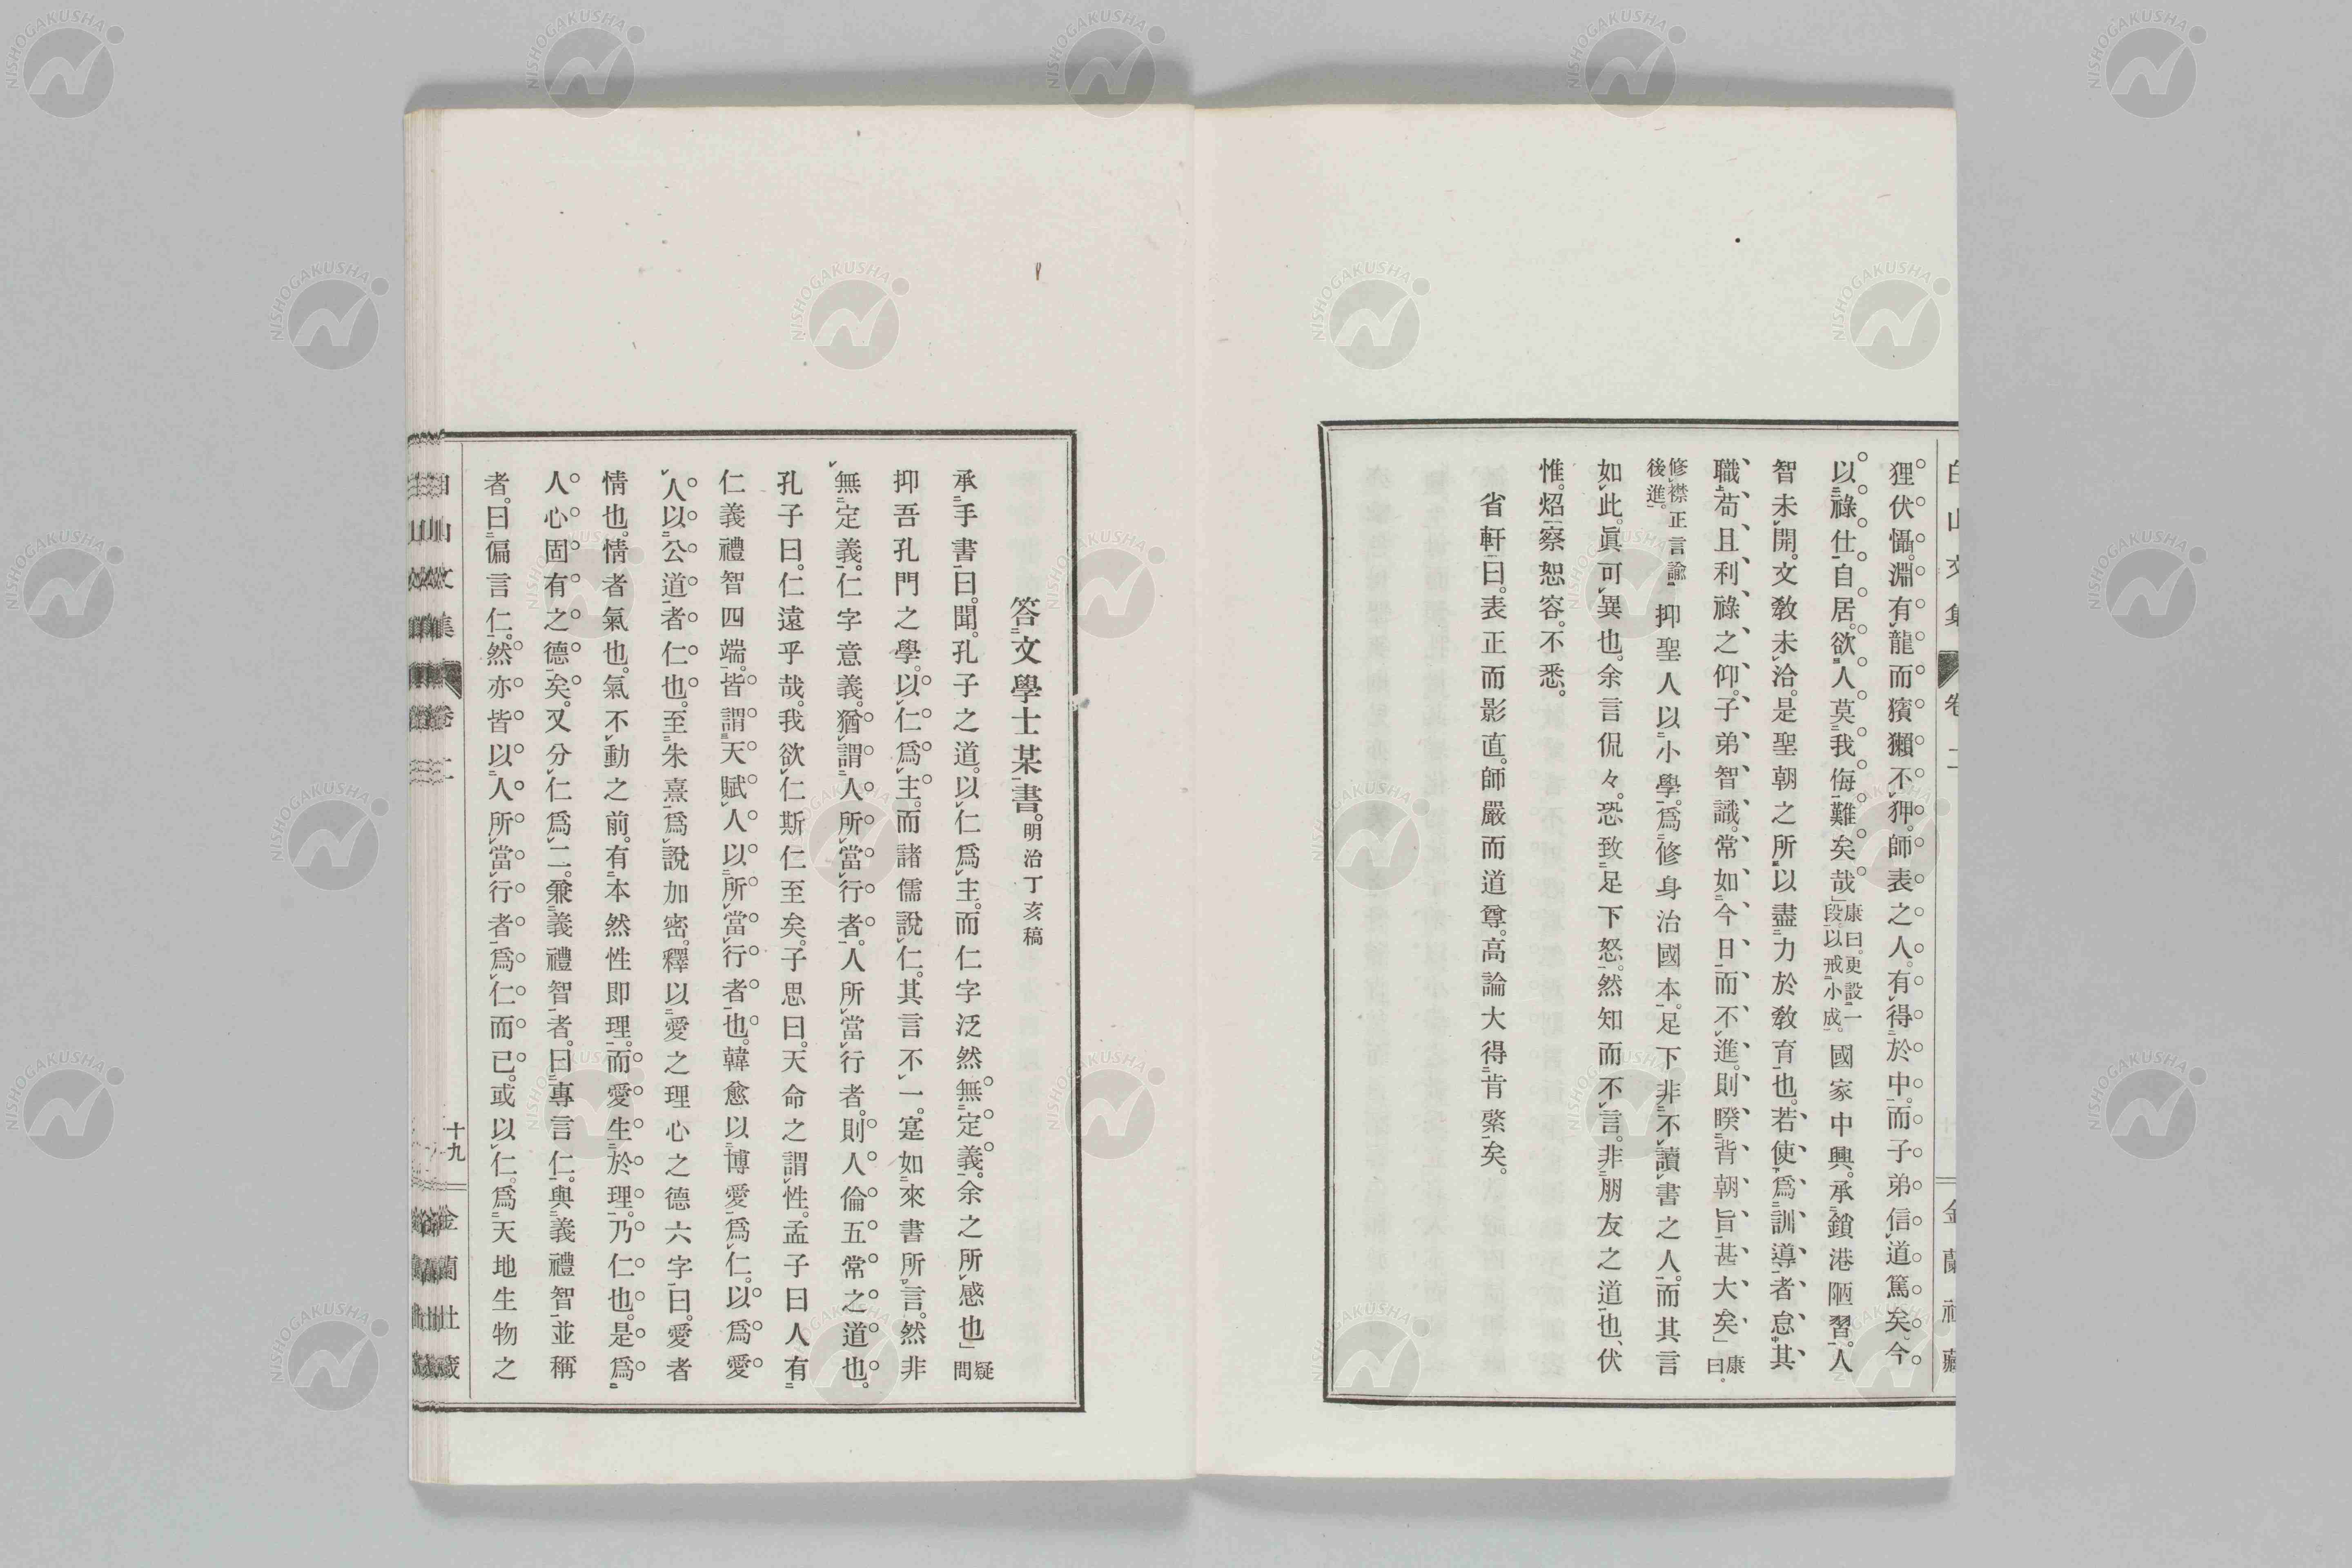 狸伏懾。淵有龍而獱獺不狎。師表之人。有得於中。而子弟信道篤矣。今
以祿仕自居。欲人莫我侮難矣哉」康曰。更設一段。以戒小成。國家中興。承鎖港陋習。人
智未開。文敎未洽。是聖朝之所以盡力於敎育也。若使爲訓導者怠其
職、苟且利祿之仰。子弟智識。常如今日而不進。則暌背朝旨甚大矣」康曰。
修襟正言諭後進。抑聖人以小學。爲修身治國本。足下非不讀書之人。而其言
如此。眞可異也。余言侃々。恐致足下怒。然知而不言。非朋友之道也、伏
惟。炤察恕容。不悉。
省軒曰。表正而影直。師嚴而道尊。高論大得肯綮矣。
答文學士某書。明治丁亥稿
承手書曰。聞。孔子之道。以仁爲主。而仁字泛然無定義。余之所感也」疑問
抑吾孔門之學。以仁爲主。而諸儒說仁。其言不一。寔如來書所言。然非
無定義。仁字意義。猶謂人所當行者。人所當行者。則人倫五常之道也。
孔子曰。仁遠乎哉。我欲仁斯仁至矣。子思曰。天命之謂性。孟子曰人有
仁義禮智四端。皆謂天賦人以所當行者也。韓愈以博愛爲仁。以爲愛
人以公道者仁也。至朱熹爲說加密。釋以愛之理心之德六字曰。愛者
情也。情者氣也。氣不動之前。有本然性即理。而愛生於理。乃仁也。是爲
人心固有之德矣。又分仁爲二。兼義禮智者。曰專言仁。與義禮智並稱
者。曰偏言仁。然亦皆以人所當行者爲仁而已。或以仁。爲天地生物之
卷二
十九